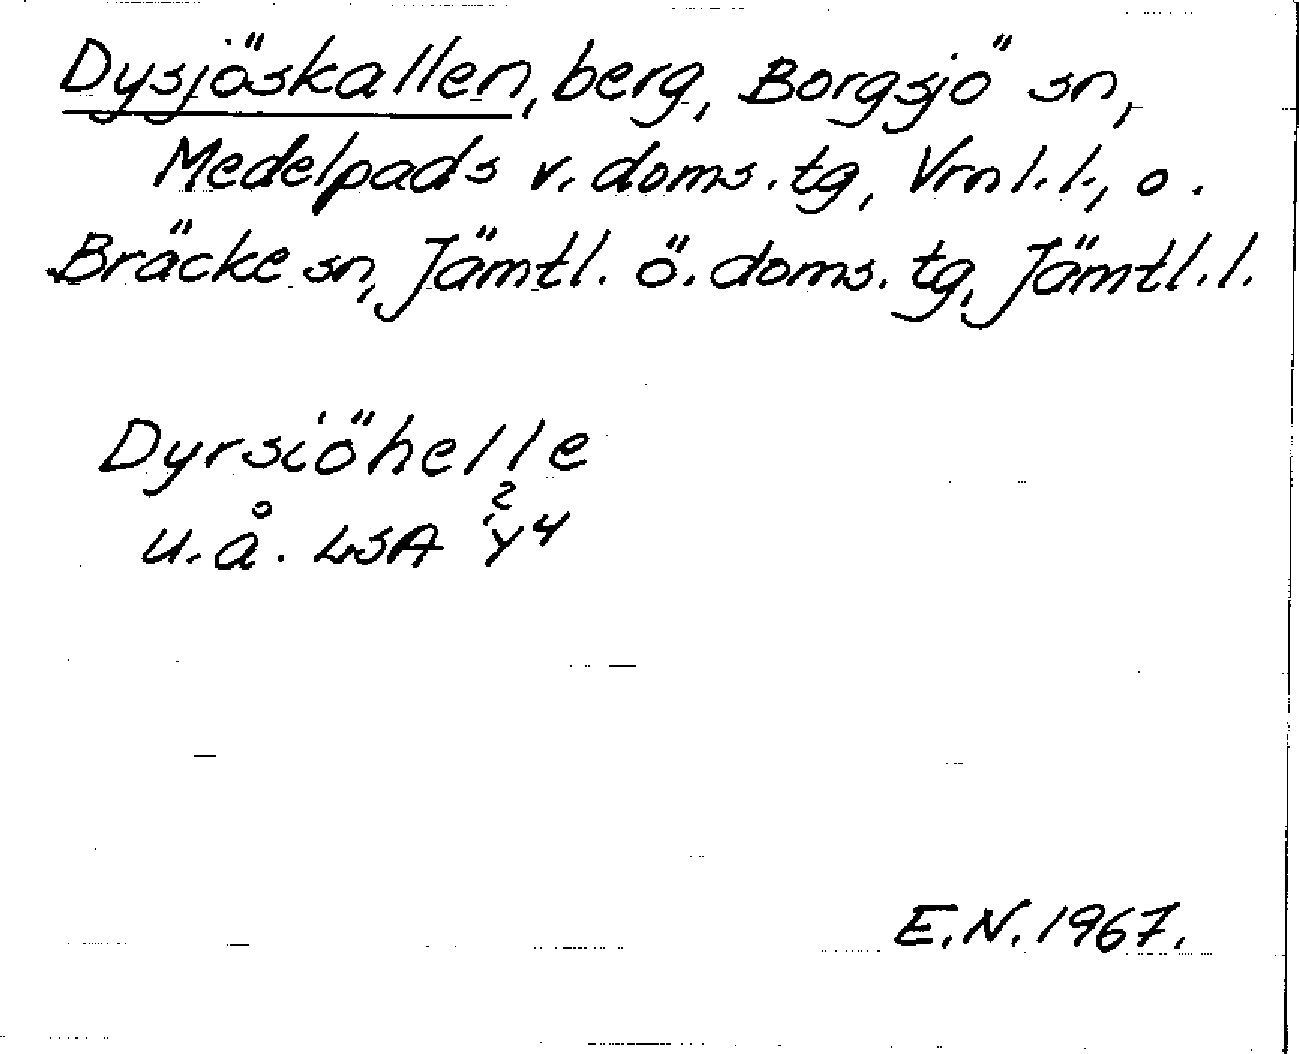 Dysjöskallen, berg, Borgsjö sn,
Medelpads v. doms. tg, Vrnl.l., o.
Bräcke sn, Jämtl. ö. doms. tg, Jämtl.l.
Dyrsiöhelle
u.å. LSA Y²4
E.N. 1967.